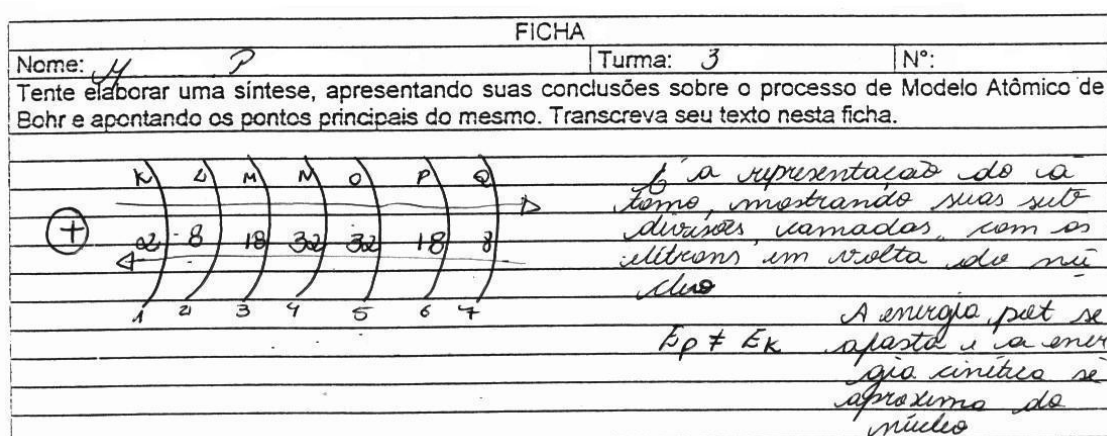 FICHA
Nome: M P Turma: 3 N°:
Tente elaborar uma síntese, apresentando suas conclusões sobre o processo de Modelo Atômico de
Bohr e apontando os pontos principais do mesmo. Transcreva seu texto nesta ficha.
K L M N O P Q
+ 2 8 18 32 32 18 8
1 2 3 4 5 6 7
É a representação do á
tomo, mostrando suas sub
divisões, camadas, com os
elétrons em volta do nú
cleo
A energia pot se
Ep ≠ Ek afasta e a ener
gia cinética se
aproxima do
núcleo